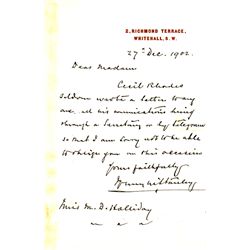 2, RICHMOND TERRACE,
WHITEHALL, S. W.
27th Dec. 1902.
Dear Madam
Cecil Rhodes
seldom wrote a letter to any
one, all his communications being
through a Secretary or by telegram
so that I am sorry not to be able
to oblige you on this occasion
Yours faithfully
Henry M Stanley
Miss M. D. Halliday